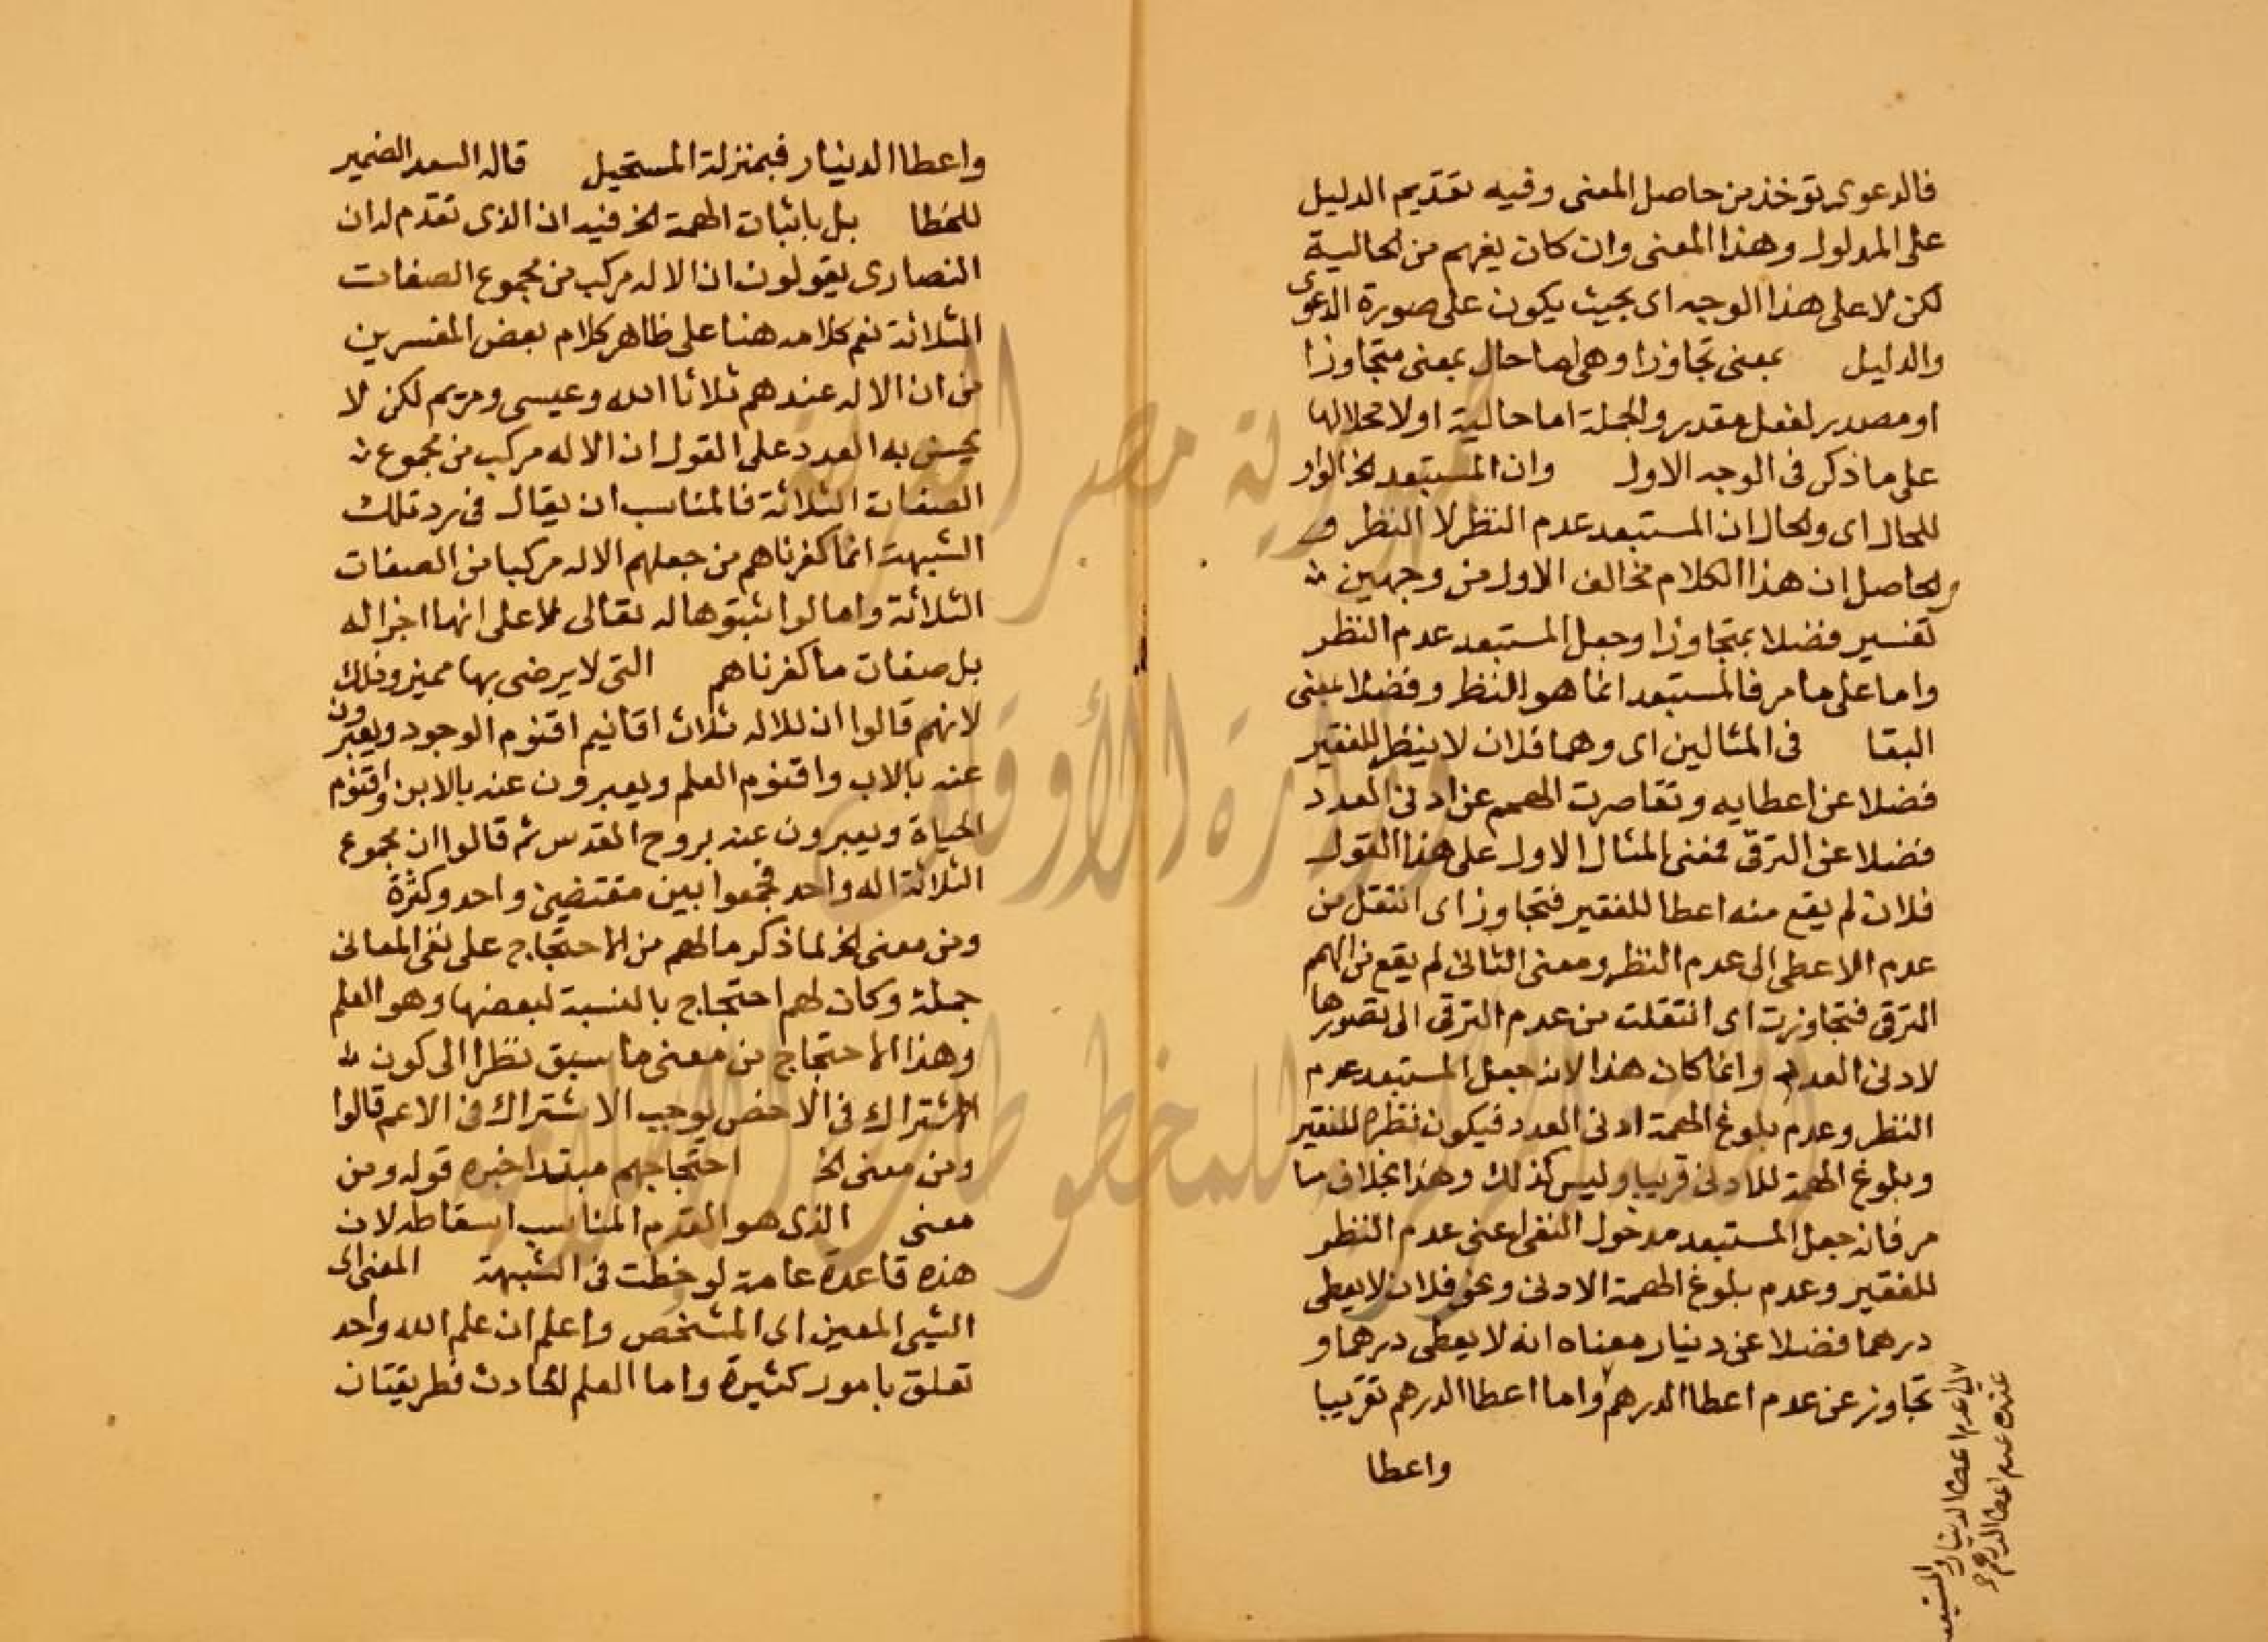 فالدعوى توخذ من حاصل المعنى وفيه تقديم الدليل
على المدلول وهذا المعنى وان كان يفهم من الحالية
لكن لا على هذا الوجه اى بحيث يكون على صورة الدعوى
والدليل بمعنى تجاوزا وهى اما حال بمعنى متجاوزا
او مصدر لفعل مقدر والجملة اما حالية اولا محل لها
على ما ذكر فى الوجه الاول وان المستبعد الخ الواو
للحال اى والحال ان المستبعد عدم النظر لا النظر و
والحاصل ان هذا الكلام مخالف الاول من وجهين
تفسير فضلا بمتجاوزا وجعل المستبعد عدم النظر
واما على ما مر فالمستبعد انما هو النظر وفضلا بمعنى
البقا فى المثالين اى وهما فلان لا ينظر للفقير
فضلا عن اعطايه وتقاصرت الهمم عن ادنى العدد
فضلا عن الترقى فمعنى المثال الاول على هذا القول
فلان لم يقع منه اعطا للفقير فتجاوز اى انتقل من
عدم الاعطى الى عدم النظر ومعنى الثانى لم يقع من الهمم
الترقى فتجاوزت اى انتقلت من عدم الترقى الى تصورها
لادنى العدد وانما كان هذا لانه جعل المستبعد عدم
النظر وعدم بلوغ الهمة ادنى العدد فيكون نظره للفقير
وبلوغ الهمة للادنى قريبا وليس كذلك وهذا بخلاف ما
مر فانه جعل المستبعد مدخول النفى اعنى عدم النظر
للفقير وعدم بلوغ الهمة الادنى ونحو فلان لا يعطى
درهما فضلا عن دينار معناه انه لا يعطى درهما و
تجاوز عن عدم اعطا الدرهم واما اعطا الدرهم تقريبا
واعطا
الى عدم اعطا الدينار والمستبعد
عنده عدم اعطا الدرهم
واعطا الدينار فبمنزلة المستحيل قاله السعد الضمير
للخطا بل باثبات الهمة الخ فيه ان الذى تقدم له ان
النصارى يقولون ان الاله مركب من مجموع الصفات
الثلاثة نعم كلامه هنا على ظاهر كلام بعض المفسرين
من ان الاله عندهم ثلاثا الله وعيسى ومريم لكن لا
يحسن به العدد على القول ان الاله مركب من مجموع
الصفات الثلاثة فالمناسب ان يقال فى رد تلك
الشبهة انما كفرناهم من جعلهم الاله مركبا من الصفات
الثلاثة واما لو اثبتوها له تعالى لا على انها اجزا له
بل صفات ما كفرناهم التى لا يرضى بها مميز وذلك
لانهم قالوا ان للاله ثلاث اقانيم اقنوم الوجود ويعبرون
عنه بالاب واقنوم العلم ويعبرون عنه بالابن واقنوم
الحياة ويعبرون عنه بروح القدس ثم قالوا ان مجموع
الثلاثة اله واحد فجمعوا بين متقتضيين واحد وكثرة
ومن معنى الخ لما ذكر ما لهم من الاحتجاج على نفى المعانى
جملة وكان لهم احتجاج بالنسبة لبعضها وهو العلم
وهذا الاحتجاج من معنى ما سبق نظرا الى كون
الاشتراك فى الاخص يوجب الاشتراك فى الاعم قالوا
ومن معنى الخ احتجاجهم مبتدا خبره قوله ومن
معنى الذى هو القدم المناسب اسقاطه لان
هذه قاعدة عامة لوحظت فى الشبهة المعنى اى
الشيى المعين اى المشخص واعلم ان علم الله واحد
تعلق بامور كثيرة واما العلم الحادث فطريقتان